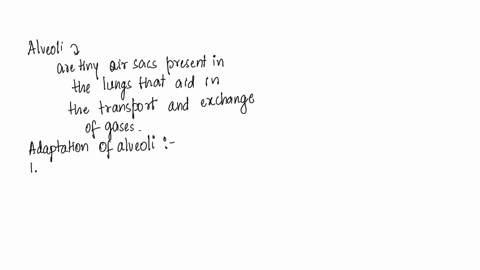 Alveoli ↴
are tiny air sacs present in
the lungs that aid in
the transport and exchange
of gases.
Adaptation of alveoli :-
1.